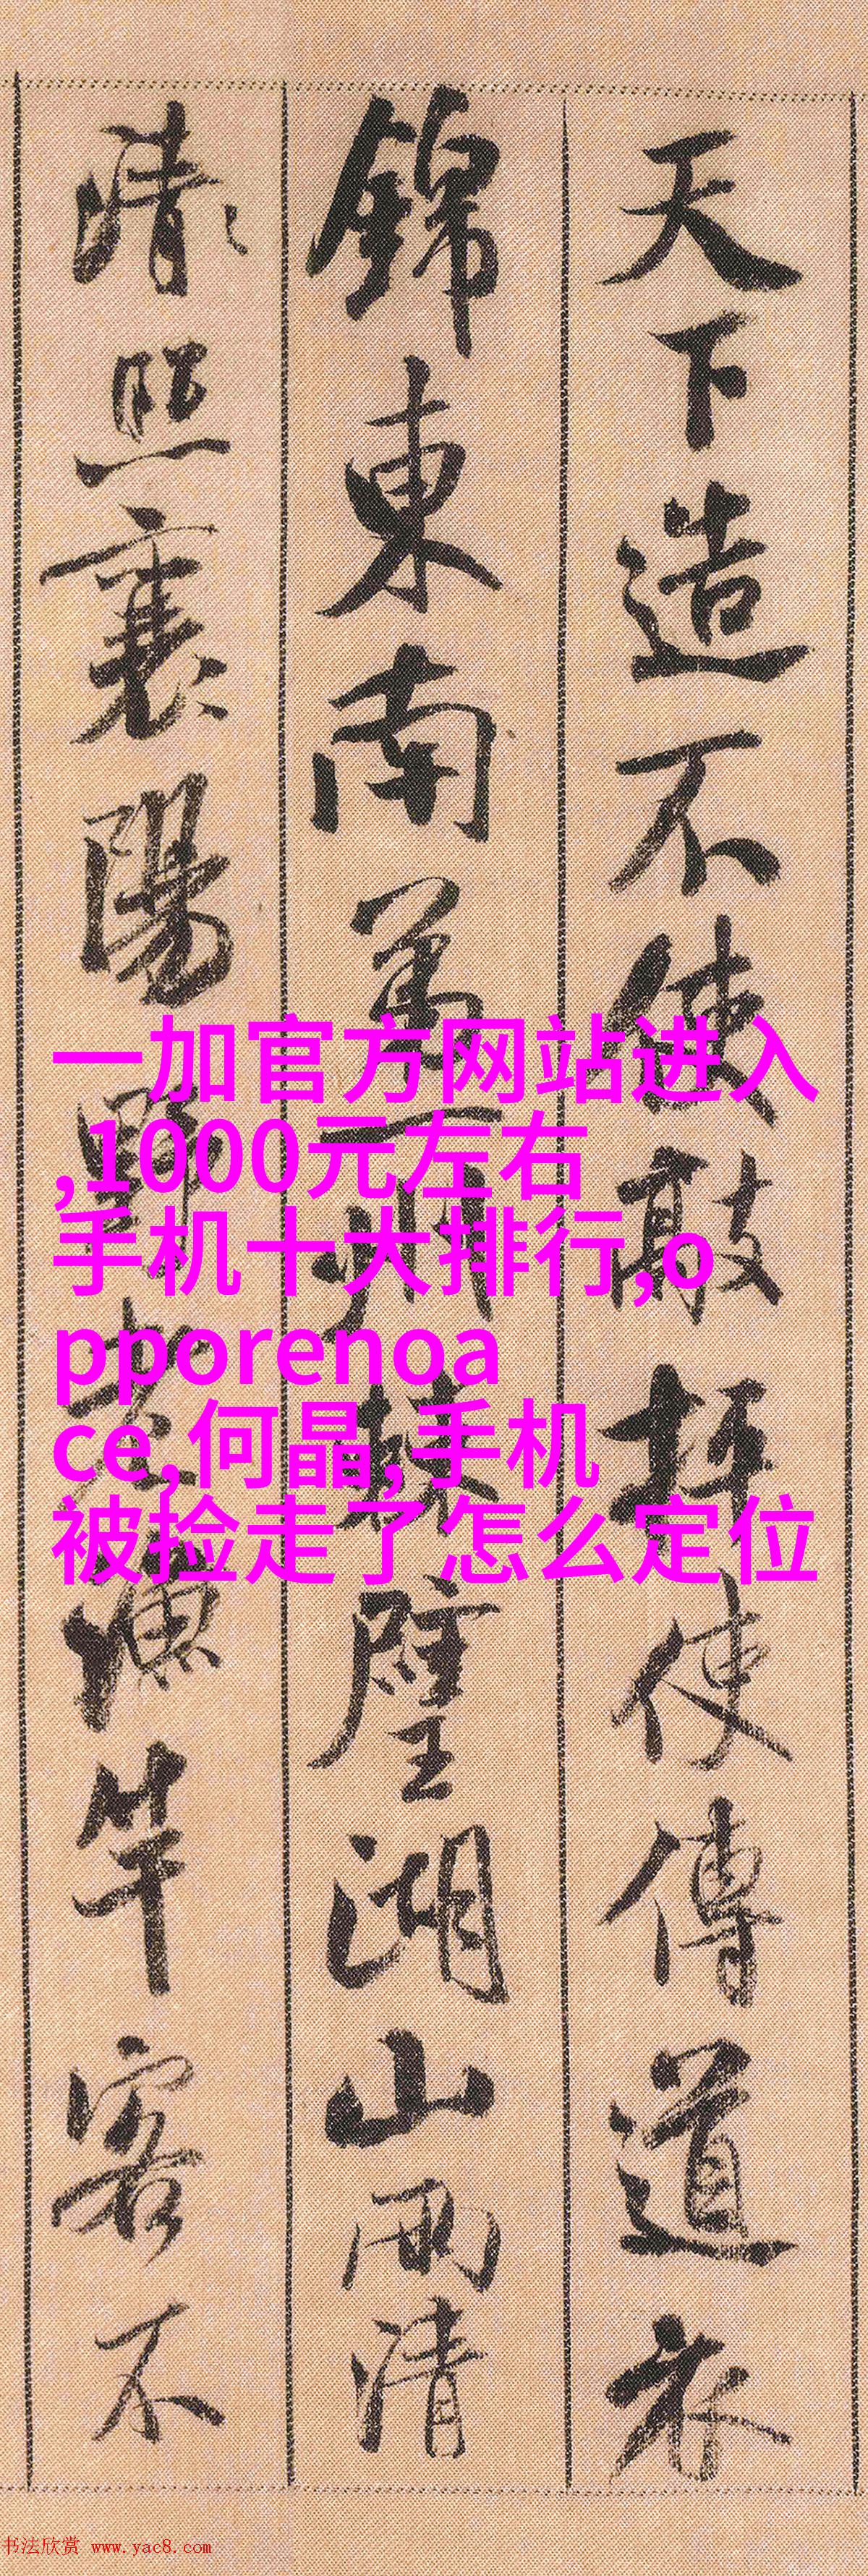 天下造不使敲抨使傳道衣
錦東南萬一州棘壁湖山兩
清
清〻照襄陽野老漁竿客不
一加官方网站进入
,1000元左右
手机十大排行,o
pporenoa
ce,何晶,手机
被捡走了怎么定位
书法欣赏 www.yac8.com